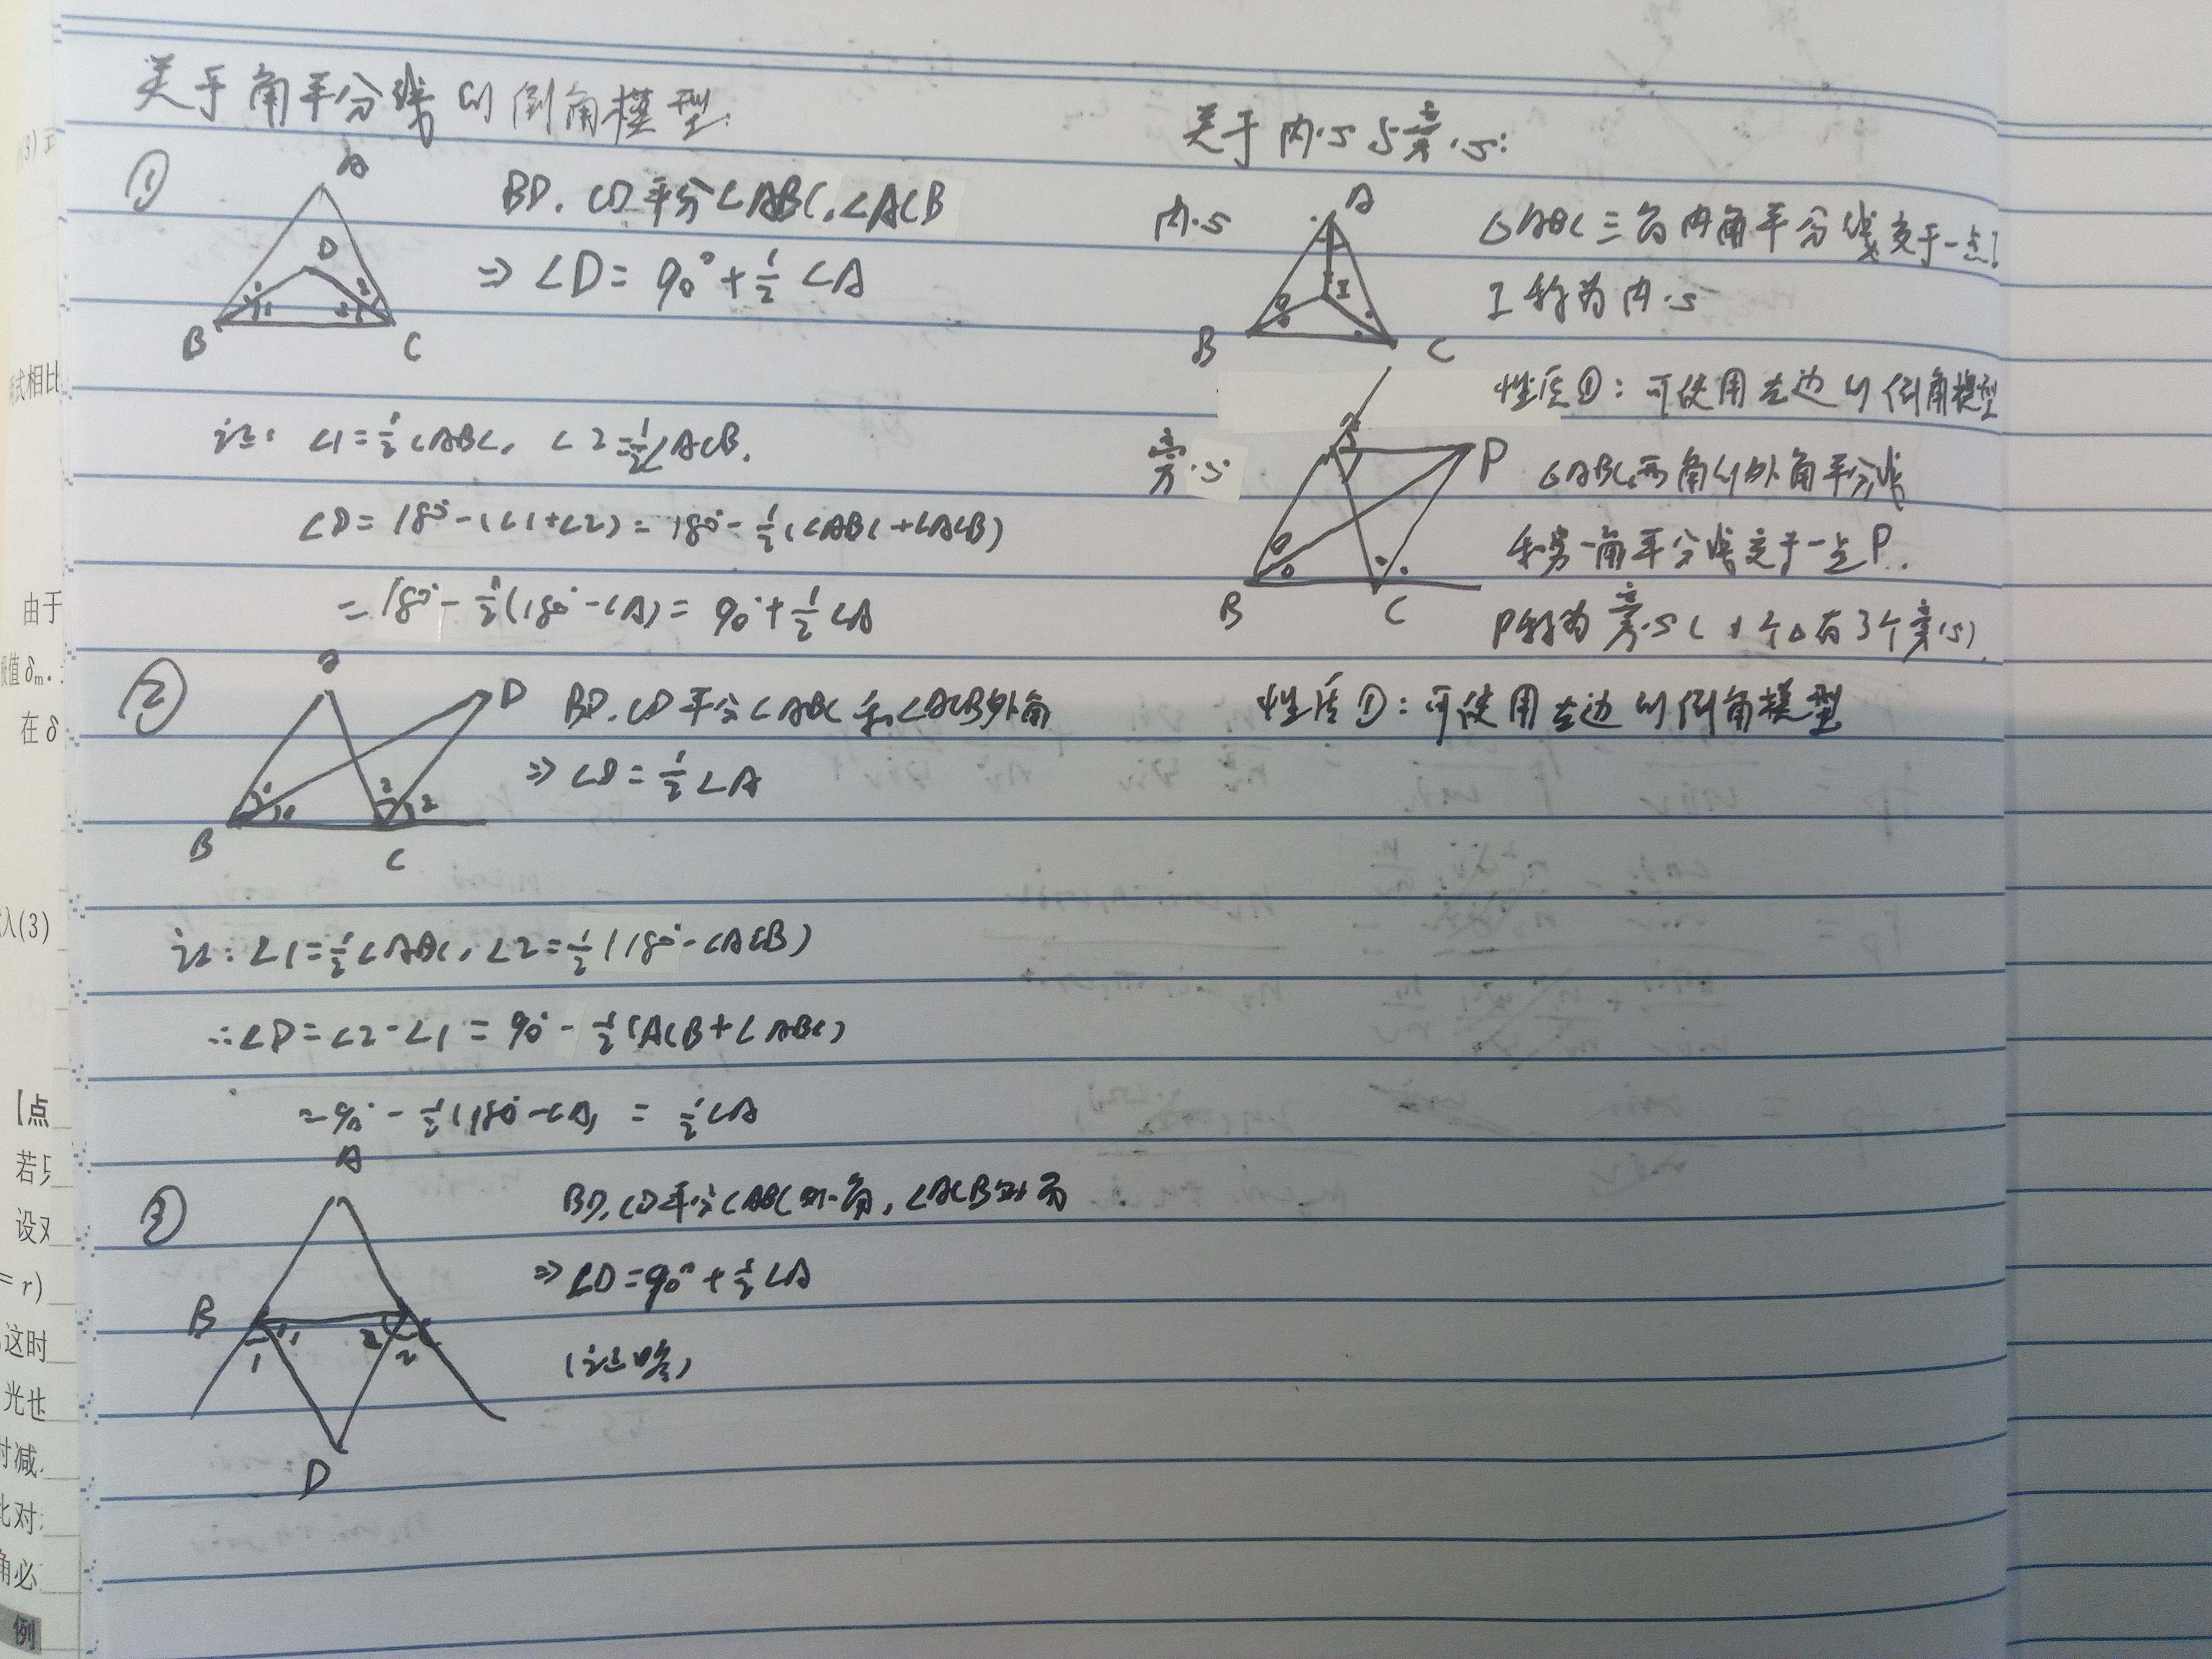 关于角平分线的倒角模型:
①
A
D
1
1
2
2
B
C
BD, CD平分∠ABC, ∠ACB
⇒ ∠D = 90° + 1/2 ∠A
证: ∠1 = 1/2 ∠ABC, ∠2 = 1/2 ∠ACB.
∠D = 180° - (∠1+∠2) = 180° - 1/2 (∠ABC + ∠ACB)
= 180° - 1/2 (180° - ∠A) = 90° + 1/2 ∠A
②
A
D
1
1
2
2
B
C
BD, CD平分∠ABC和∠ACB外角
⇒ ∠D = 1/2 ∠A
证: ∠1 = 1/2 ∠ABC, ∠2 = 1/2 (180° - ∠ACB)
∴ ∠D = ∠2 - ∠1 = 90° - 1/2 (ACB + ∠ABC)
= 90° - 1/2 (180° - ∠A) = 1/2 ∠A
③
A
B
1
1
2
2
C
D
BD, CD平分∠ABC外角, ∠ACB外角
⇒ ∠D = 90° + 1/2 ∠A
(证略)
关于内心与旁心:
内心
A
I
B
C
△ABC三角内角平分线交于一点I
I称为内心
性质①: 可使用左边的倒角模型
旁心
A
P
B
C
△ABC两角的外角平分线
和另一角平分线交于一点P.
P称为旁心(1个△有3个旁心)
性质①: 可使用左边的倒角模型
由于
在δ
入(3)
【点
设对
= r)
这时
光也
时减,
比对
角必
例